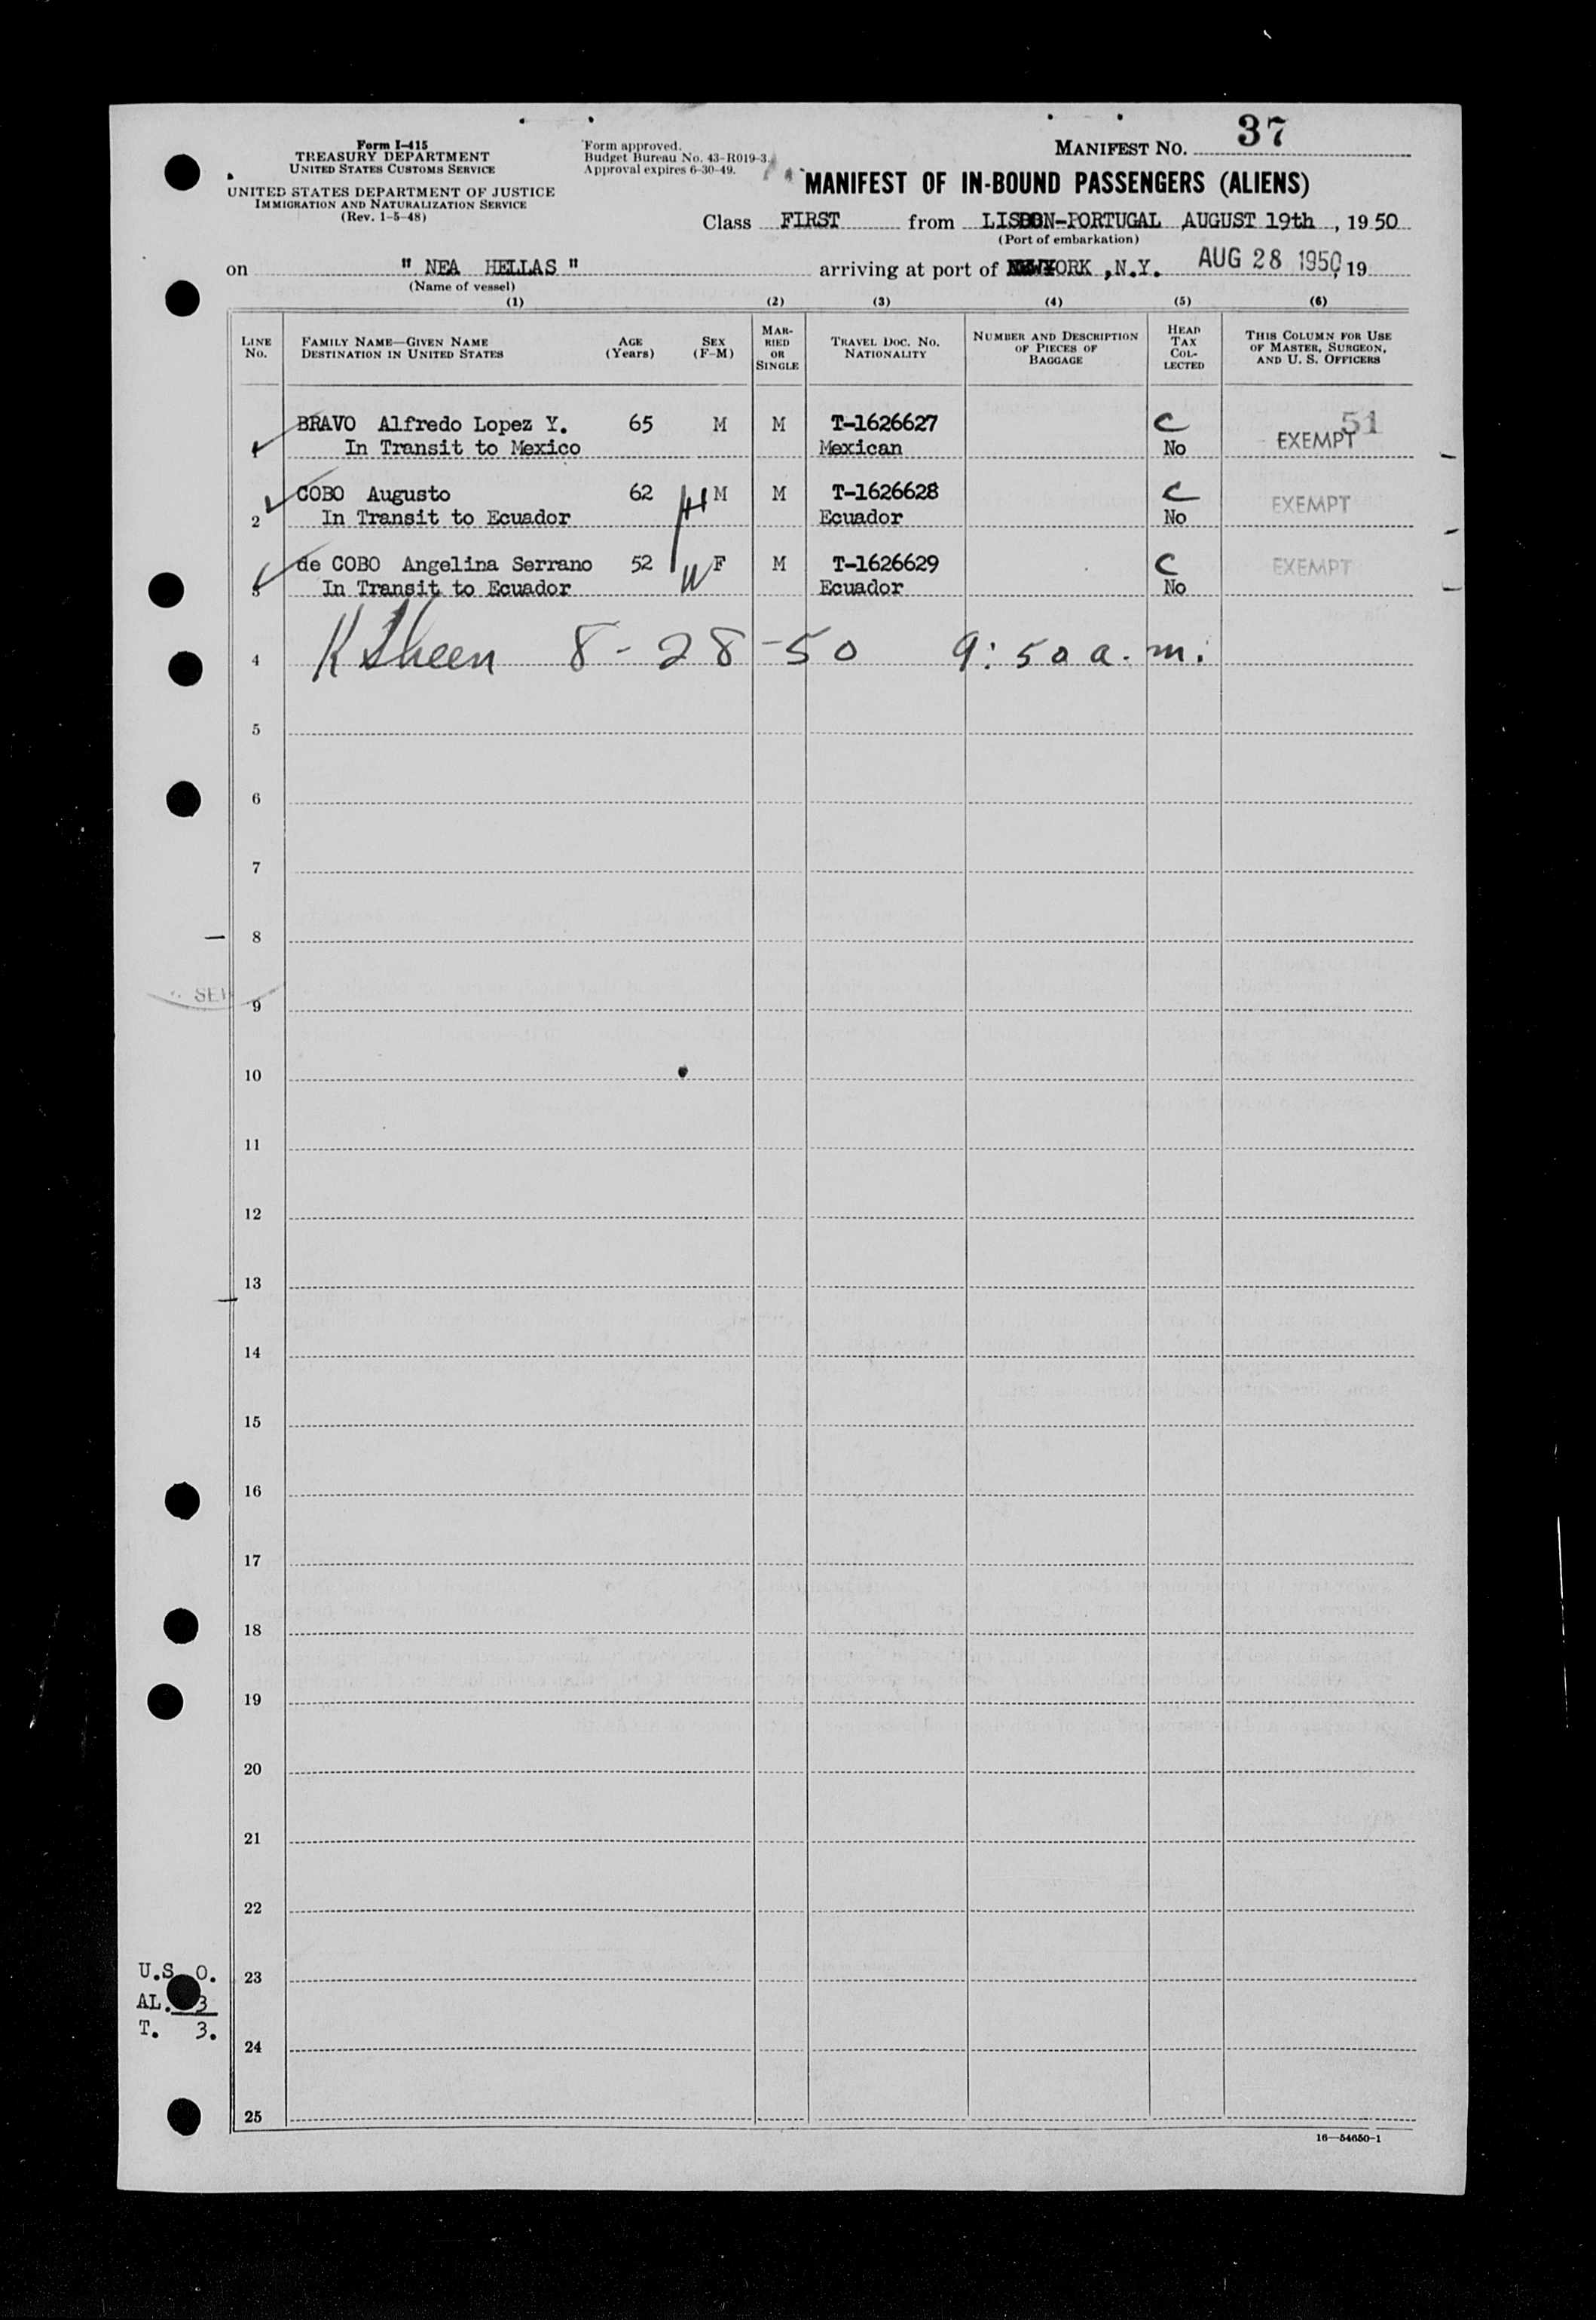 37
Form I-415
TREASURY DEPARTMENT
UNITED STATES CUSTOMS SERVICE
UNITED STATES DEPARTMENT OF JUSTICE
IMMIGRATION AND NATURALIZATION SERVICE
(Rev. 1-5-48)
Form approved.
Budget Bureau No. 43-R019-3.
Approval expires 6-30-49.
MANIFEST NO.
MANIFEST OF IN-BOUND PASSENGERS (ALIENS)
Class FIRST from LISBON-PORTUGAL AUGUST 19th, 1950
(Port of embarkation)
on " NEA HELLAS " arriving at port of NEW YORK ,N.Y. AUG 28 1950, 19
(Name of vessel)
(1) (2) (3) (4) (5) (6)
LINE No.
FAMILY NAME—GIVEN NAME
DESTINATION IN UNITED STATES
AGE (Years)
SEX (F-M)
MARRIED OR SINGLE
TRAVEL DOC. NO.
NATIONALITY
NUMBER AND DESCRIPTION OF PIECES OF BAGGAGE
HEAD TAX COLLECTED
THIS COLUMN FOR USE OF MASTER, SURGEON, AND U. S. OFFICERS
BRAVO Alfredo Lopez Y. 65 M M T-1626627 C 51
1 In Transit to Mexico Mexican No EXEMPT
COBO Augusto 62 H M M T-1626628 C EXEMPT
2 In Transit to Ecuador Ecuador No
de COBO Angelina Serrano 52 W F M T-1626629 C EXEMPT
3 In Transit to Ecuador Ecuador No
4 K Sheen 8-28-50 9:50 a.m.
5
6
7
8
9
10
11
12
13
14
15
16
17
18
19
20
21
22
23
24
25
U.S. 0.
AL. 3
T. 3.
16—54650-1